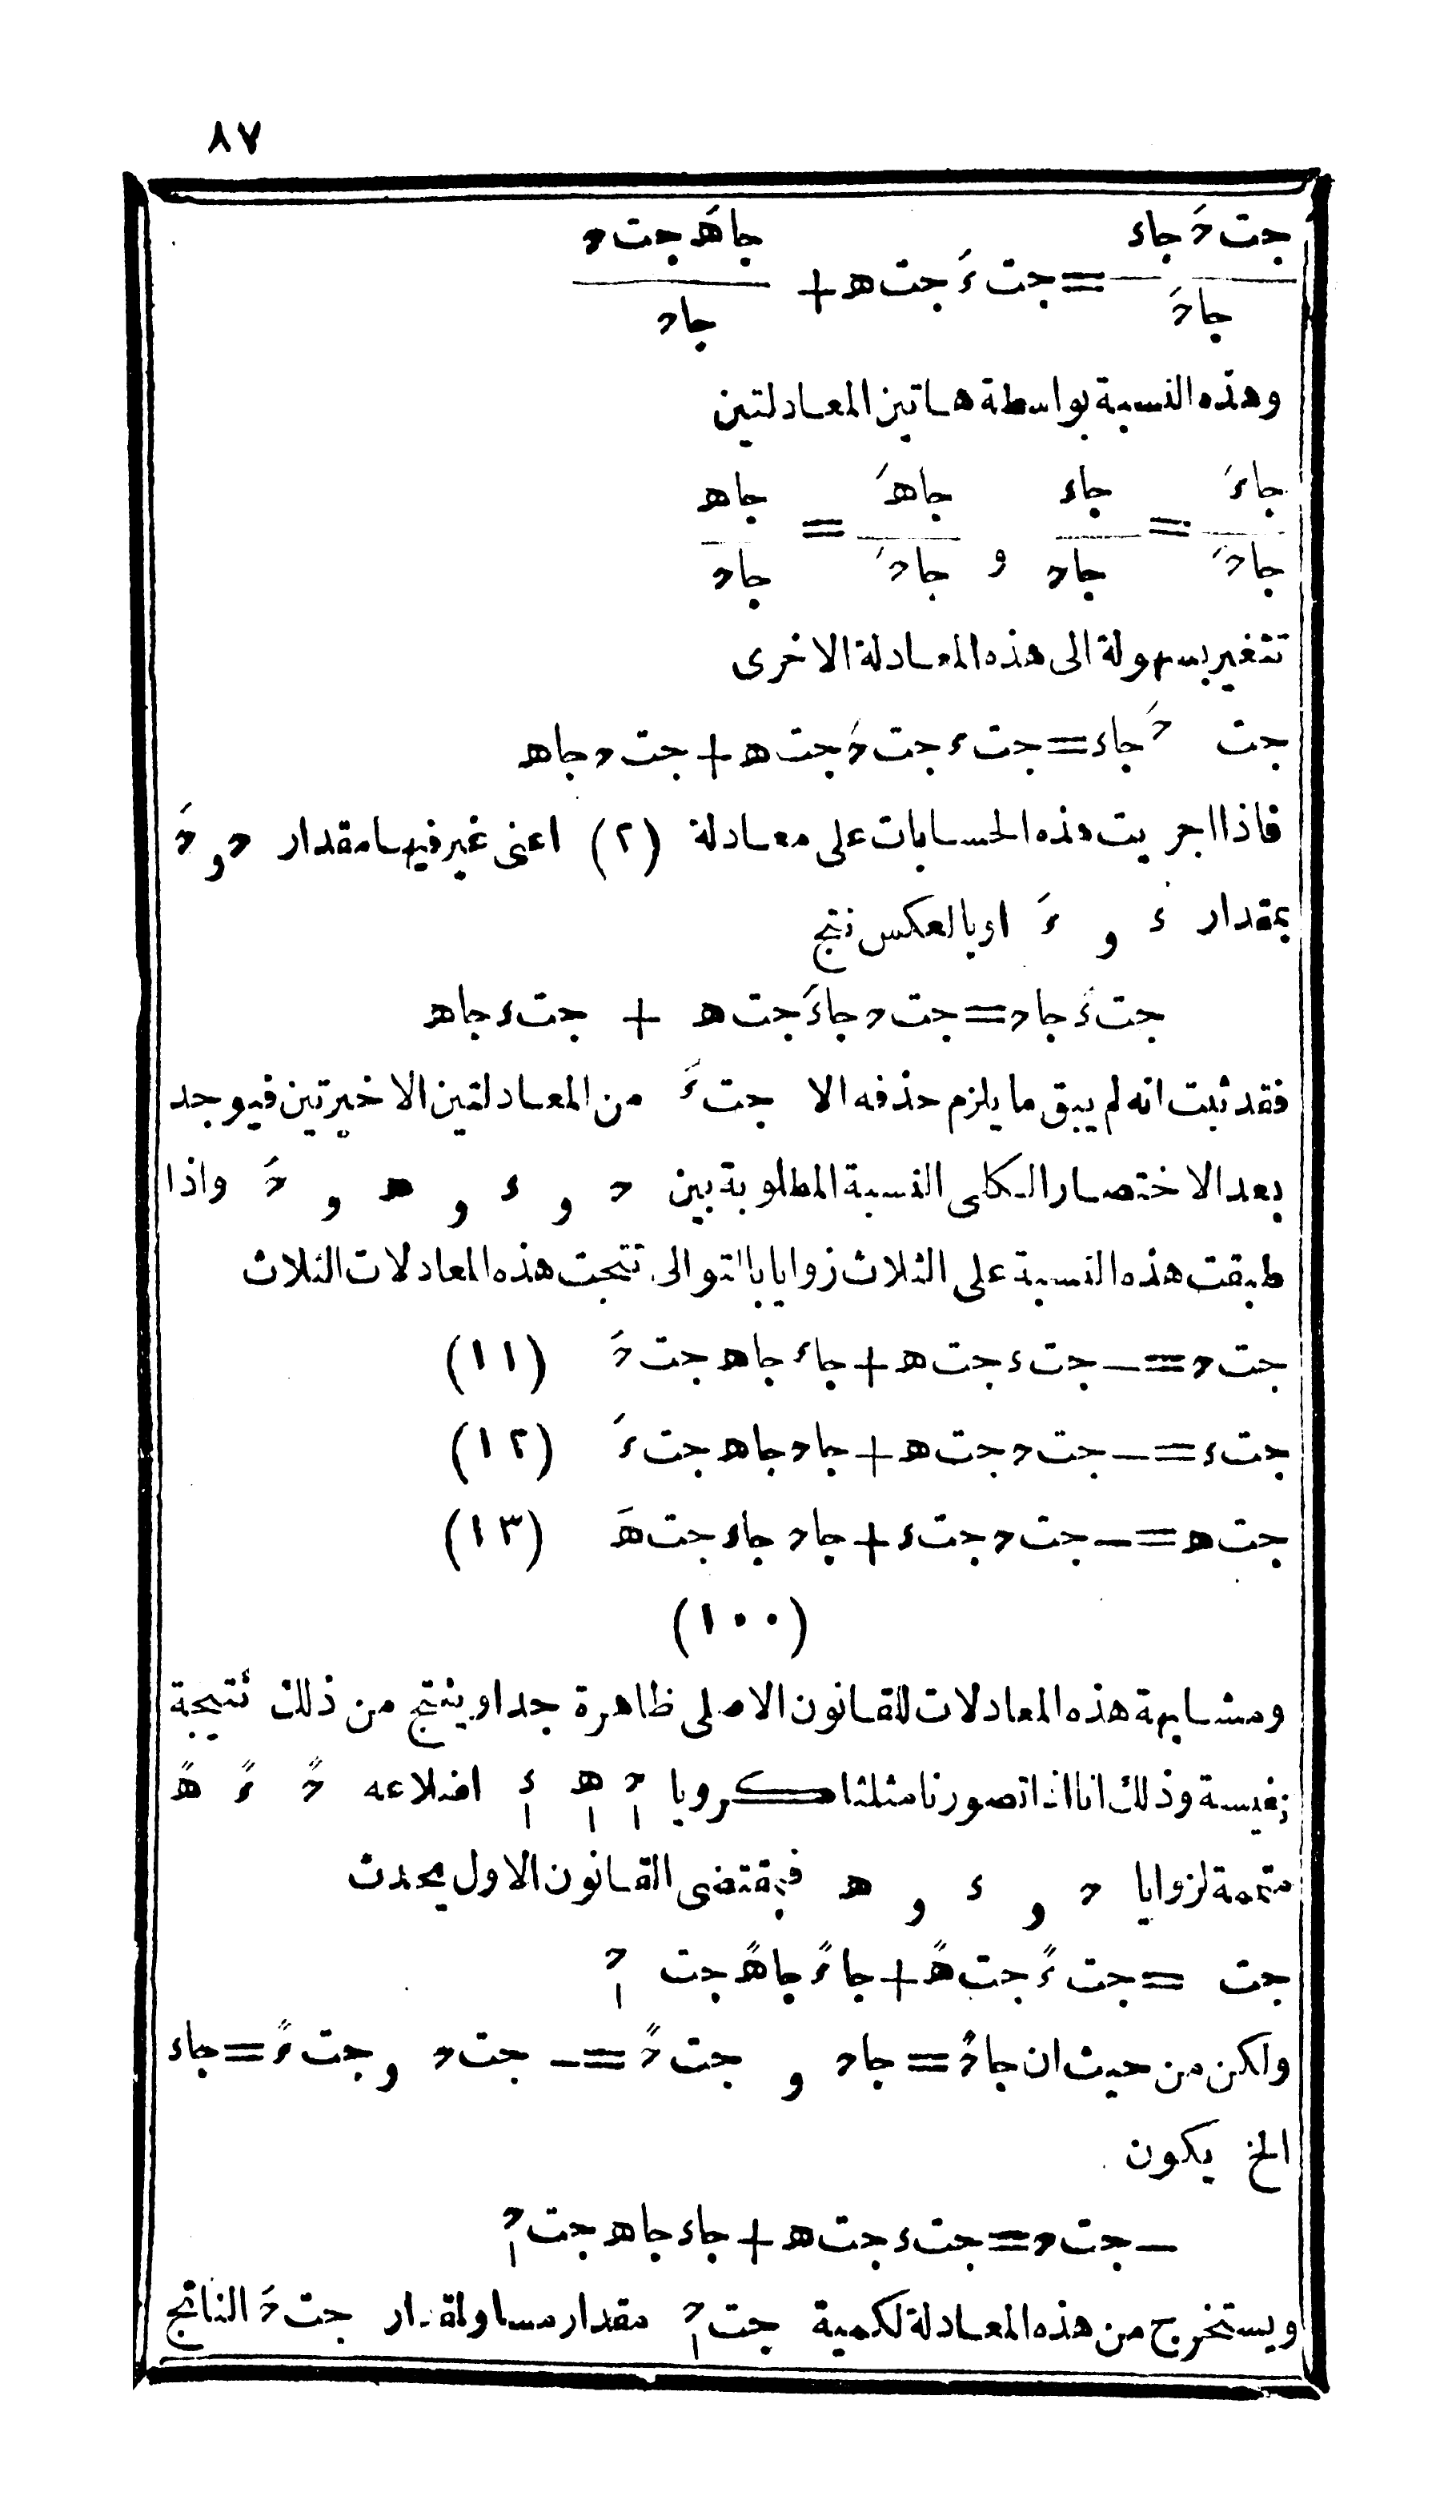 ٨٧
جت حَ جاء / جاحَ = جت ءَ جت ه + جاهَ جت ح / جاح
وهذه النسبة بواسطة هاتين المعادلتين
جاءَ / جاحَ = جاء / جاح و جاهَ / جاحَ = جاه / جاح
تتغير بسهولة الى هذه المعادلة الاخرى
جت حَ جاء = جت ء جت حَ جت ه + جت ح جاه
فاذا اجريت هذه الحسابات على معادلة (٢) اعنى غير فيها مقدار ح و حَ
بمقدار ء و ءَ او بالعكس نتج
جت ءَ جاح = جت ح جاءَ جت ه + جت ء جاه
فقد ثبت انه لم يبق ما يلزم حذفه الا جت ءَ من المعادلتين الاخيرتين فيوجد
بعد الاختصار الكلى النسبة المطلوبة بين ح و ء و ه و حَ واذا
طبقت هذه النسبة على الثلاث زوايا بالتوالى نتجت هذه المعادلات الثلاث
جت ح = — جت ء جت ه + جاء جاه جت حَ (١١)
جت ء = — جت ح جت ه + جاح جاه جت ءَ (١٢)
جت ه = — جت ح جت ء + جاح جاء جت هَ (١٣)
(١٠٠)
ومشابهة هذه المعادلات للقانون الاصلى ظاهرة جدا وينتج من ذلك نتيجة
نفيسة وذلك انا اذا تصورنا مثلثا كرويا حٖ هٖ ءٖ اضلاعه حً ءً هً
متممة لزوايا ح و ء و ه فبمقتضى القانون الاول يحدث
جت = جت ءً جت هً + جاءً جاهً جت حٖ
ولكن من حيث ان جاحً = جاح و جت حً = — جت ح و جت ءً = جاء
الخ يكون
— جت ح = جت ء جت ه + جاء جاه جت حٖ
ويستخرج من هذه المعادلة لكمية جت حٖ مقدار مساو لمقدار جت حَ الناتج